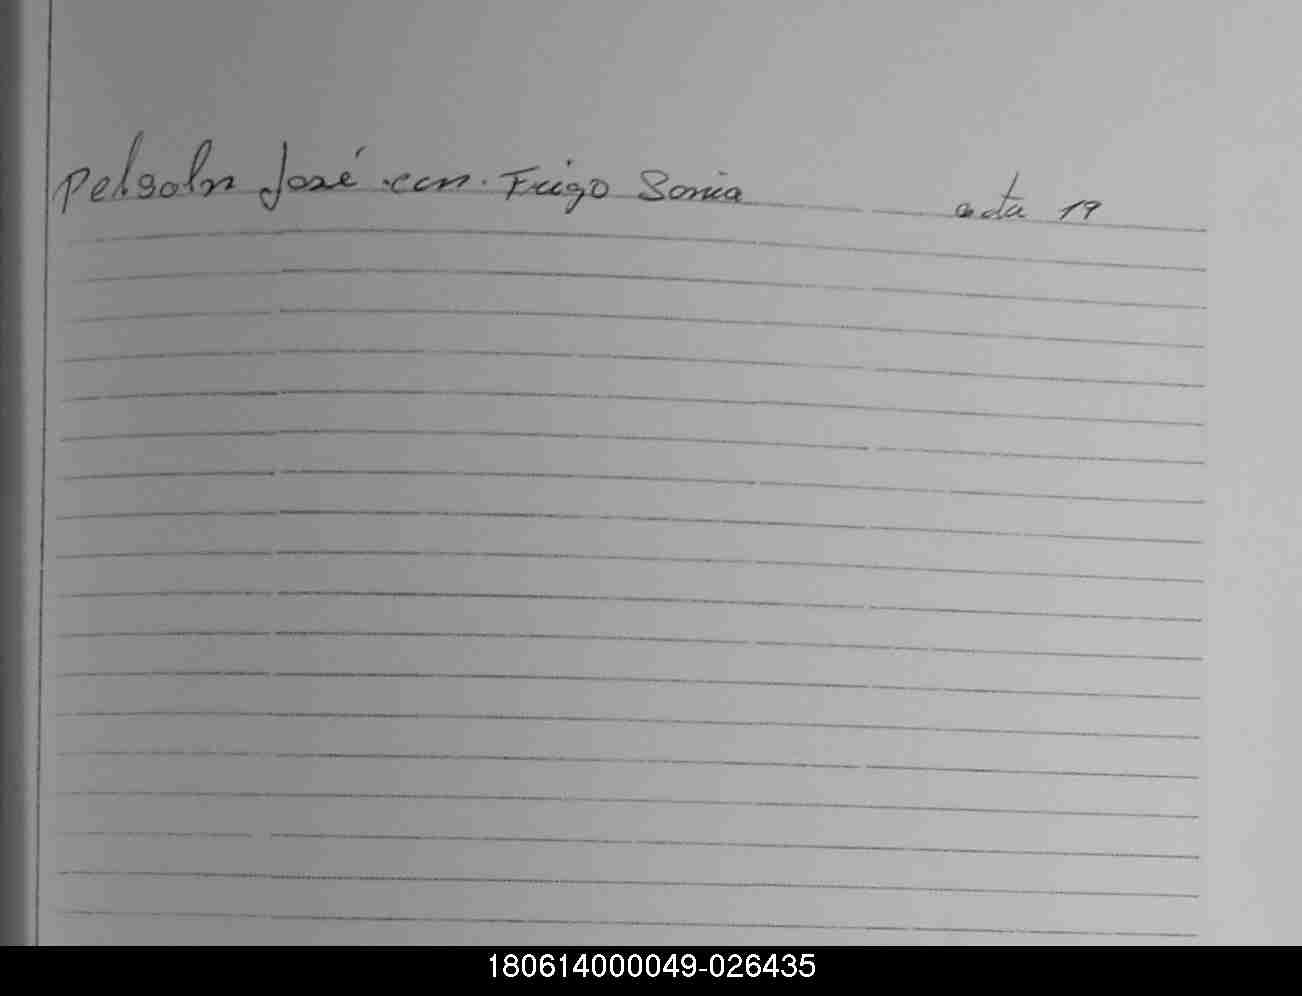 Pelsoln José con Frigo Sonia acta 19
180614000049-026435